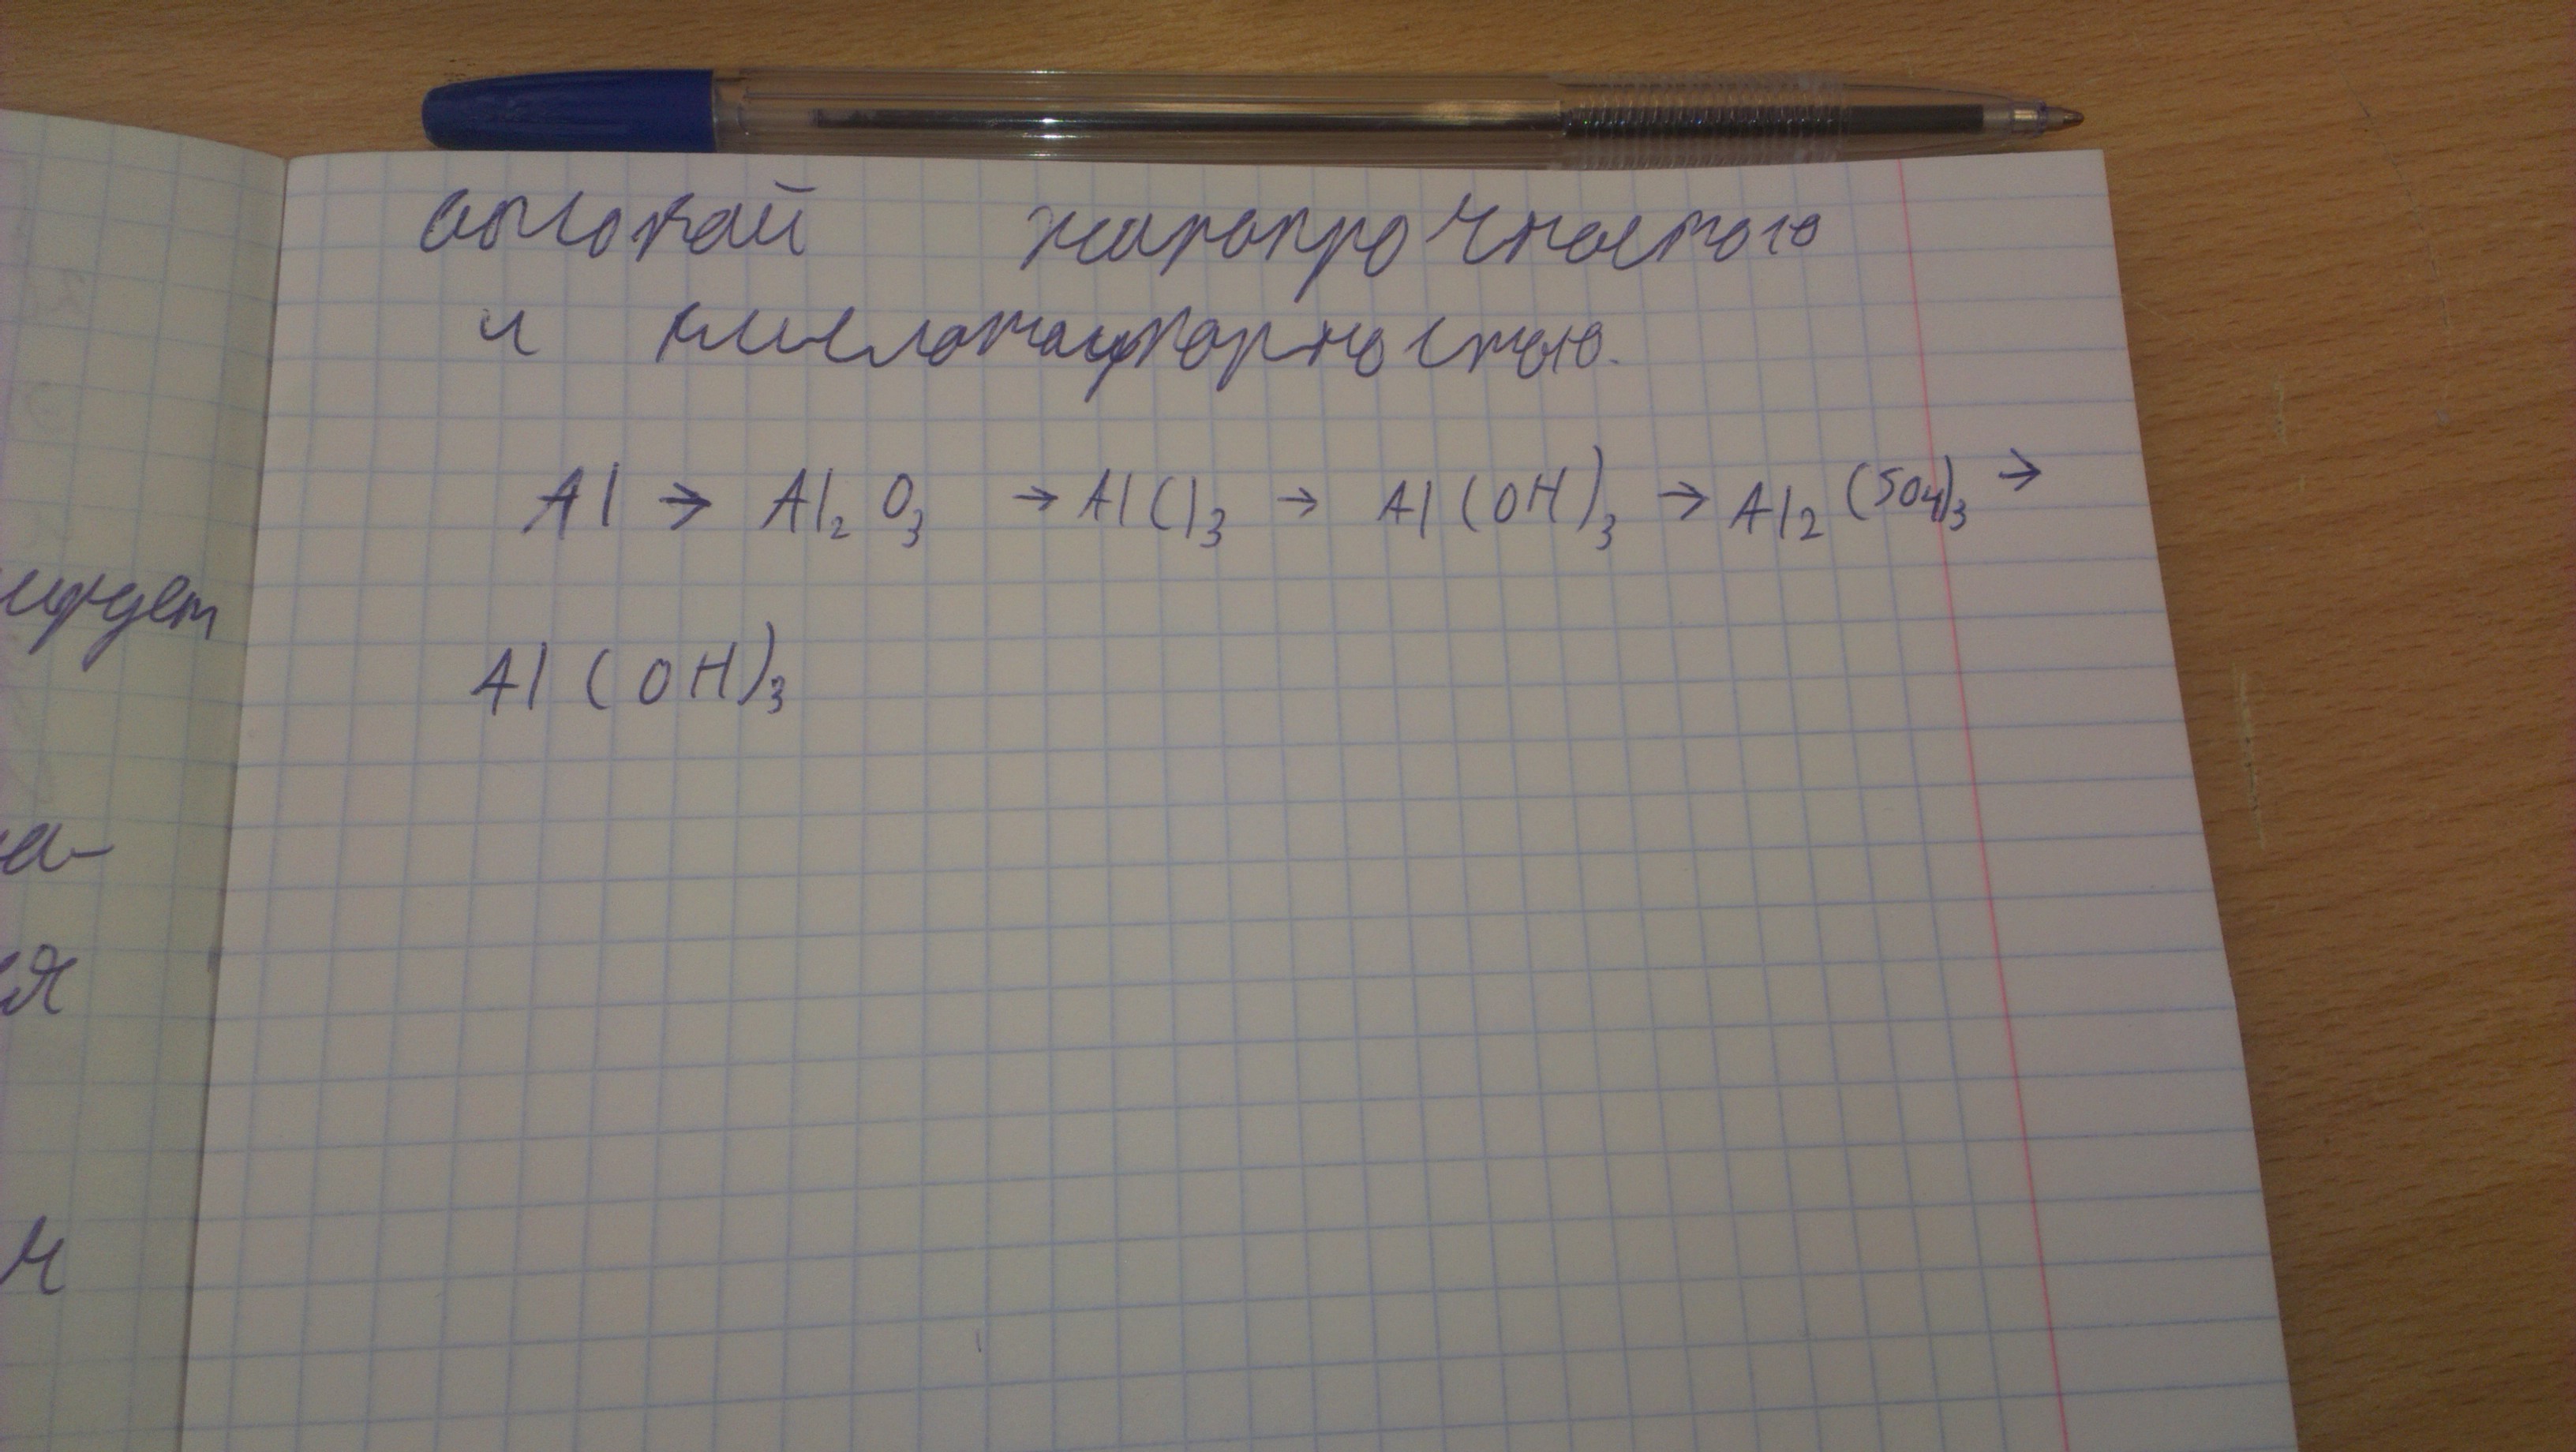 высокой жаропрочностью
и кислотоупорностью.
Al → Al₂O₃ → AlCl₃ → Al(OH)₃ → Al₂(SO₄)₃ →
Al(OH)₃